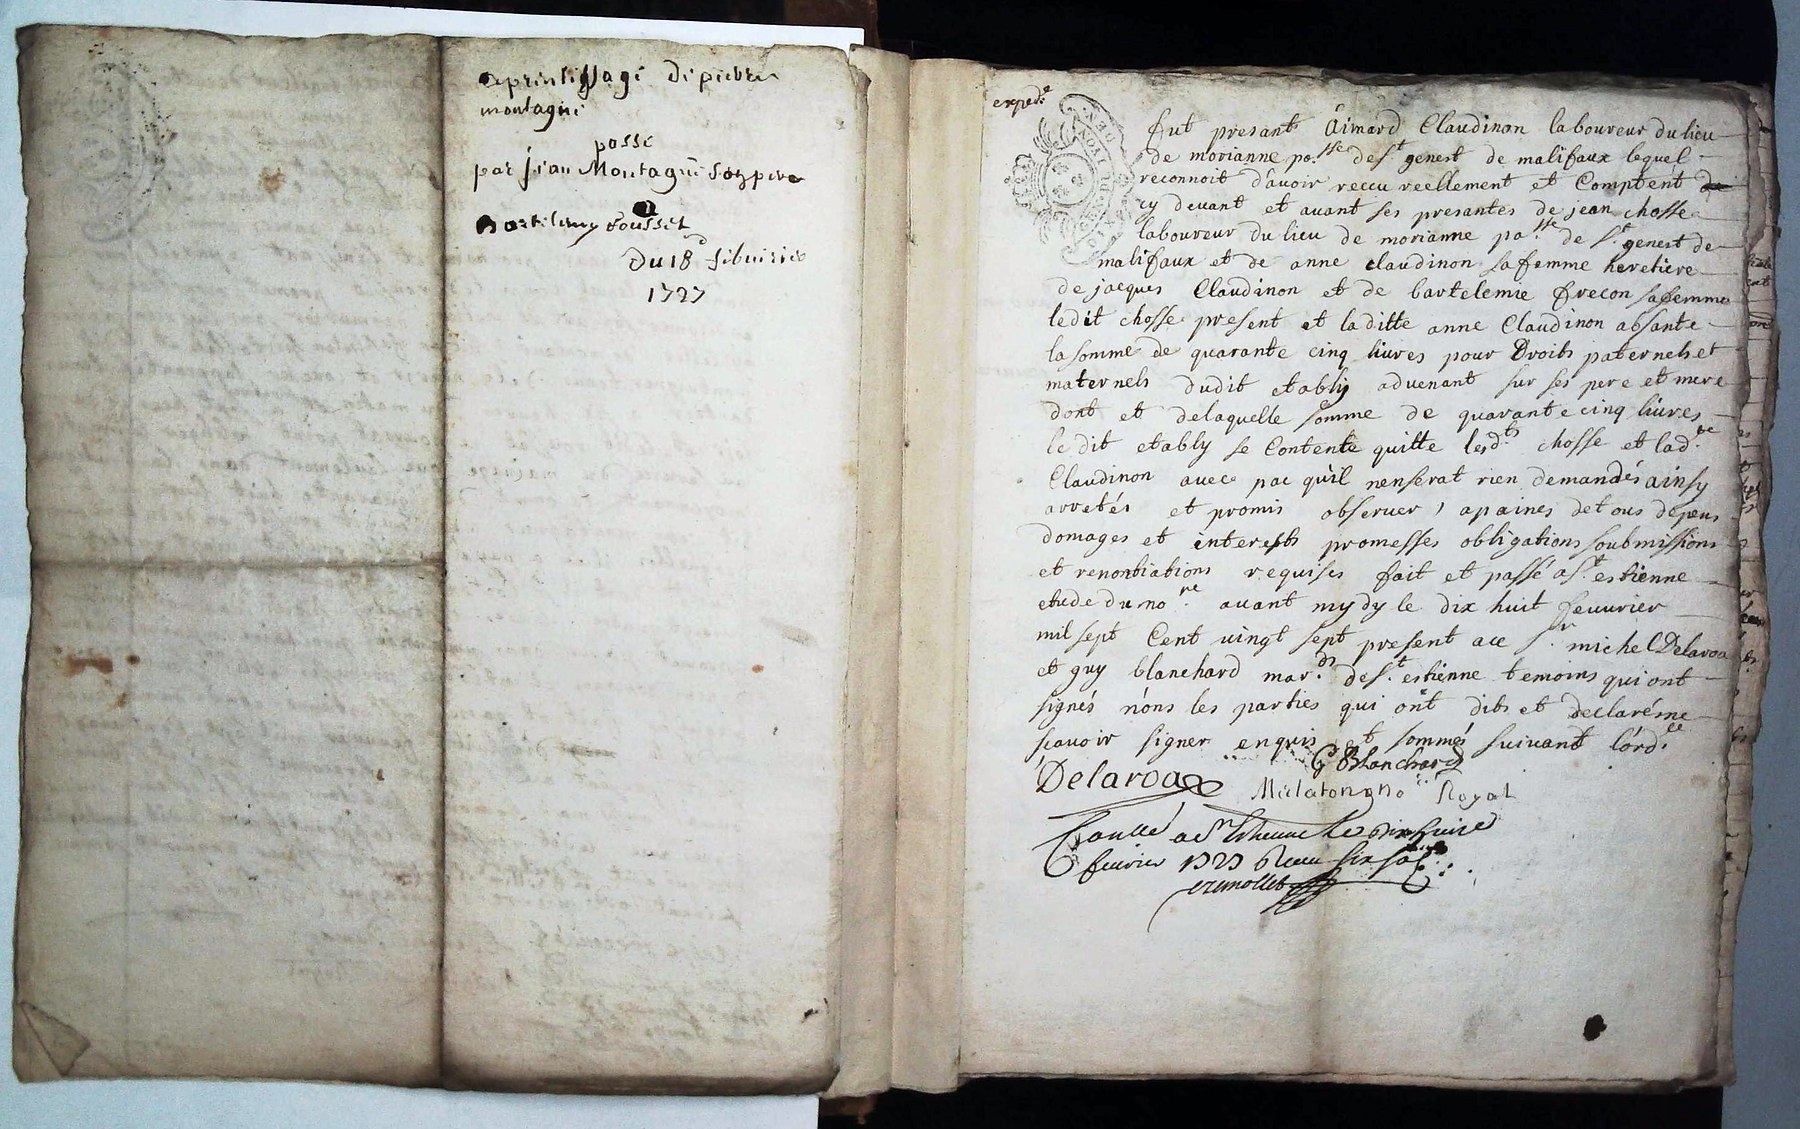 aprintissage de pierre
montagne
passé
par jean Montagne son pere
a
Bartelemy fousset
Du 18 febvrier
1727
exped.e
fut presant Aimard Claudinon laboureur du lieu
de morianne po.sse de s.t genest de malifaux lequel
reconnoit d'avoir receu reellement et Comptent
cy devant et avant ses presantes de jean chosse
laboureur du lieu de morianne pa.sse de s.t genest de
malifaux et de anne claudinon sa femme heretiere
de jacques Claudinon et de bartelemie frecon sa femme
ledit chosse present et laditte anne Claudinon absante
la somme de quarante cinq livres pour Droits paternels et
maternels dudit etably advenant sur ses pere et mere
dont et delaquelle somme de quarante cinq livres
le dit etably se Contente quitte lesd.ts chosse et lad.te
Claudinon avec pac qu'il nenserat rien demandés ainsy
arretés et promis observer, a paines de tous depens
domages et interests promesses obligations soubmissions
et renontiations requises fait et passé a s.t estienne
etude du no.re avant mydy le dix huit feuvrier
mil sept Cent vingt sept present a ce s.r michel Delaroa
et guy blanchard mar.ds de s.t estienne temoins qui ont
signés nons les parties qui ont dits et declaréme
scavoir signer enquis et sommés suivant lord.ce
G Blanchard
Delaroa
no.re Royal
Conllé a st Etienne le dixhuit
fevrier 1727 Receu six sols